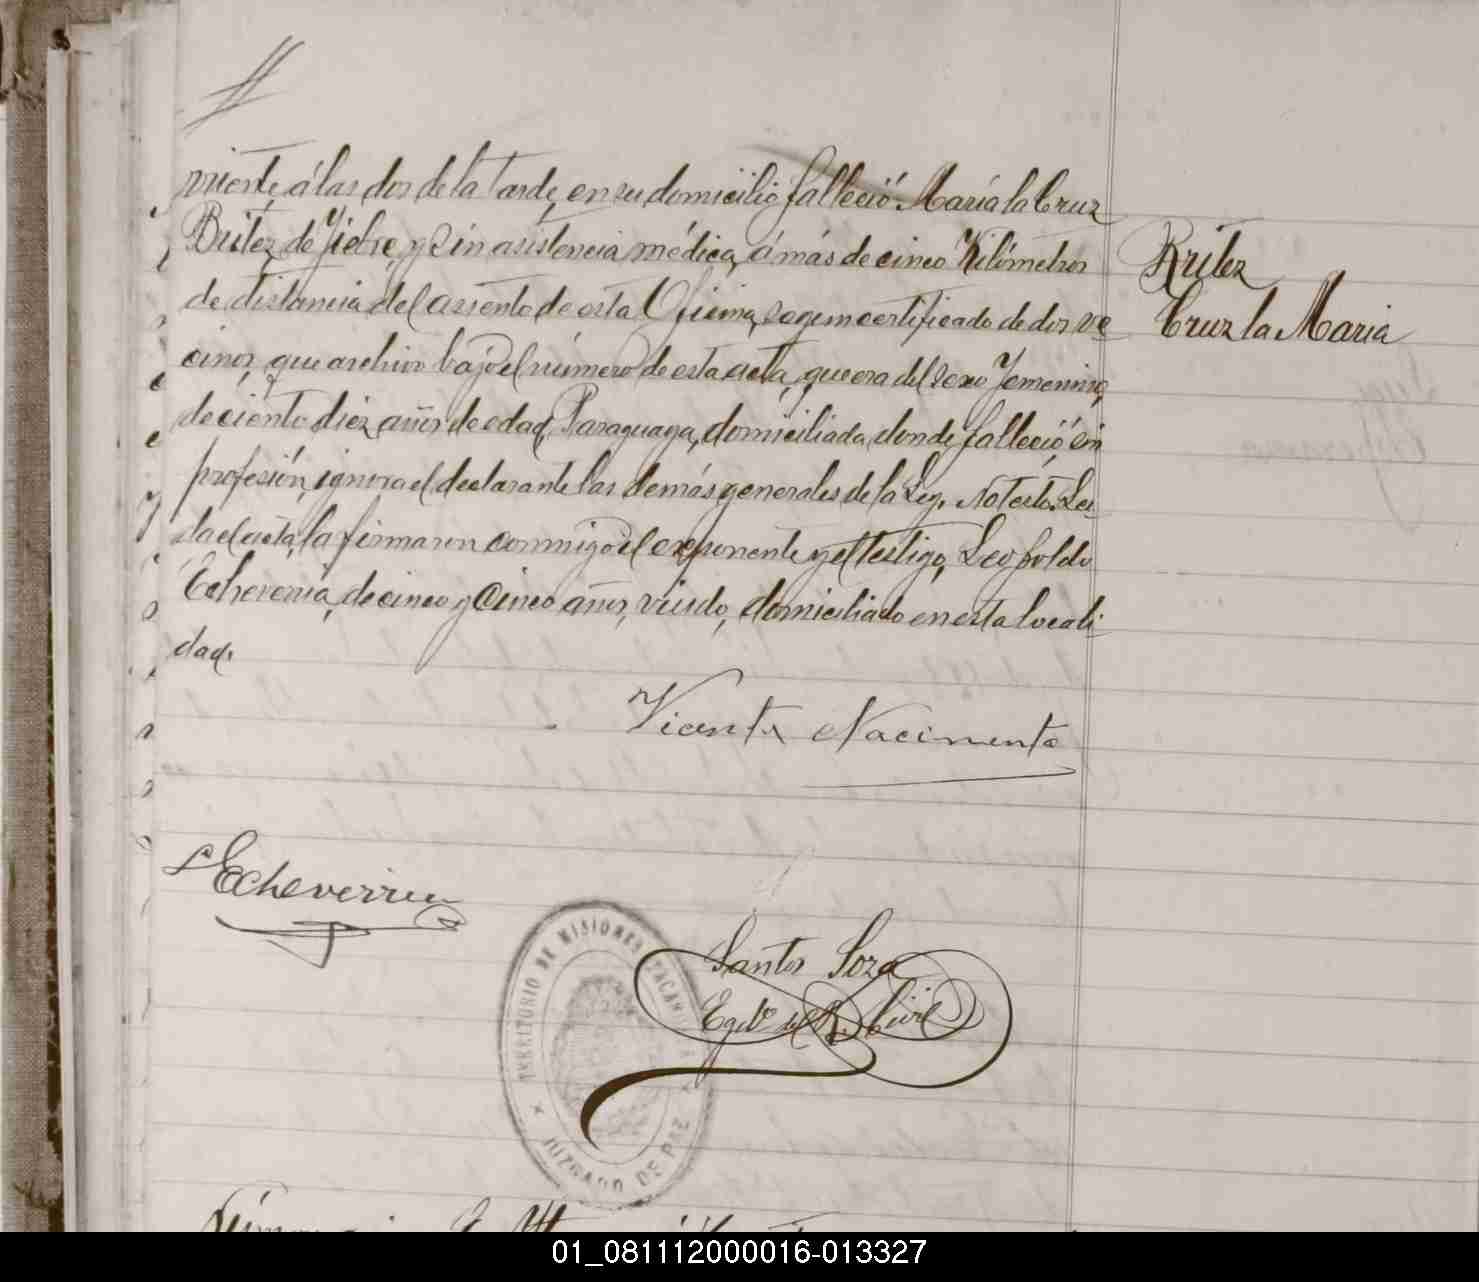 viente, á las dos de la tarde, en su domicilio falleció María la Cruz
Britez de fiebre, y sin asistencia médica, á más de cinco Kilómetros
de distancia del assento de esta Oficina, segun certificado de dos ve
cinos, que archivo bajo el número de esta acta, que era del sexo femenino,
de ciento diez años de edad, Paraguaya, domiciliada donde falleció, sin
profesión, ignora el declarante las demás generales de la Ley. No testó. Lei
da el acta, la firmaron conmigo el exponente y el testigo, Leopoldo
Echeverria, de cinco y cinco años, viudo, domiciliado en esta locali
dad.
Britez
Cruz la Maria
Vicente Nacimento
L Echeverria
Santos Soza
Egdo del R. Civil
TERRITORIO DE MISIONES
JUZGADO DE PAZ
01_081112000016-013327